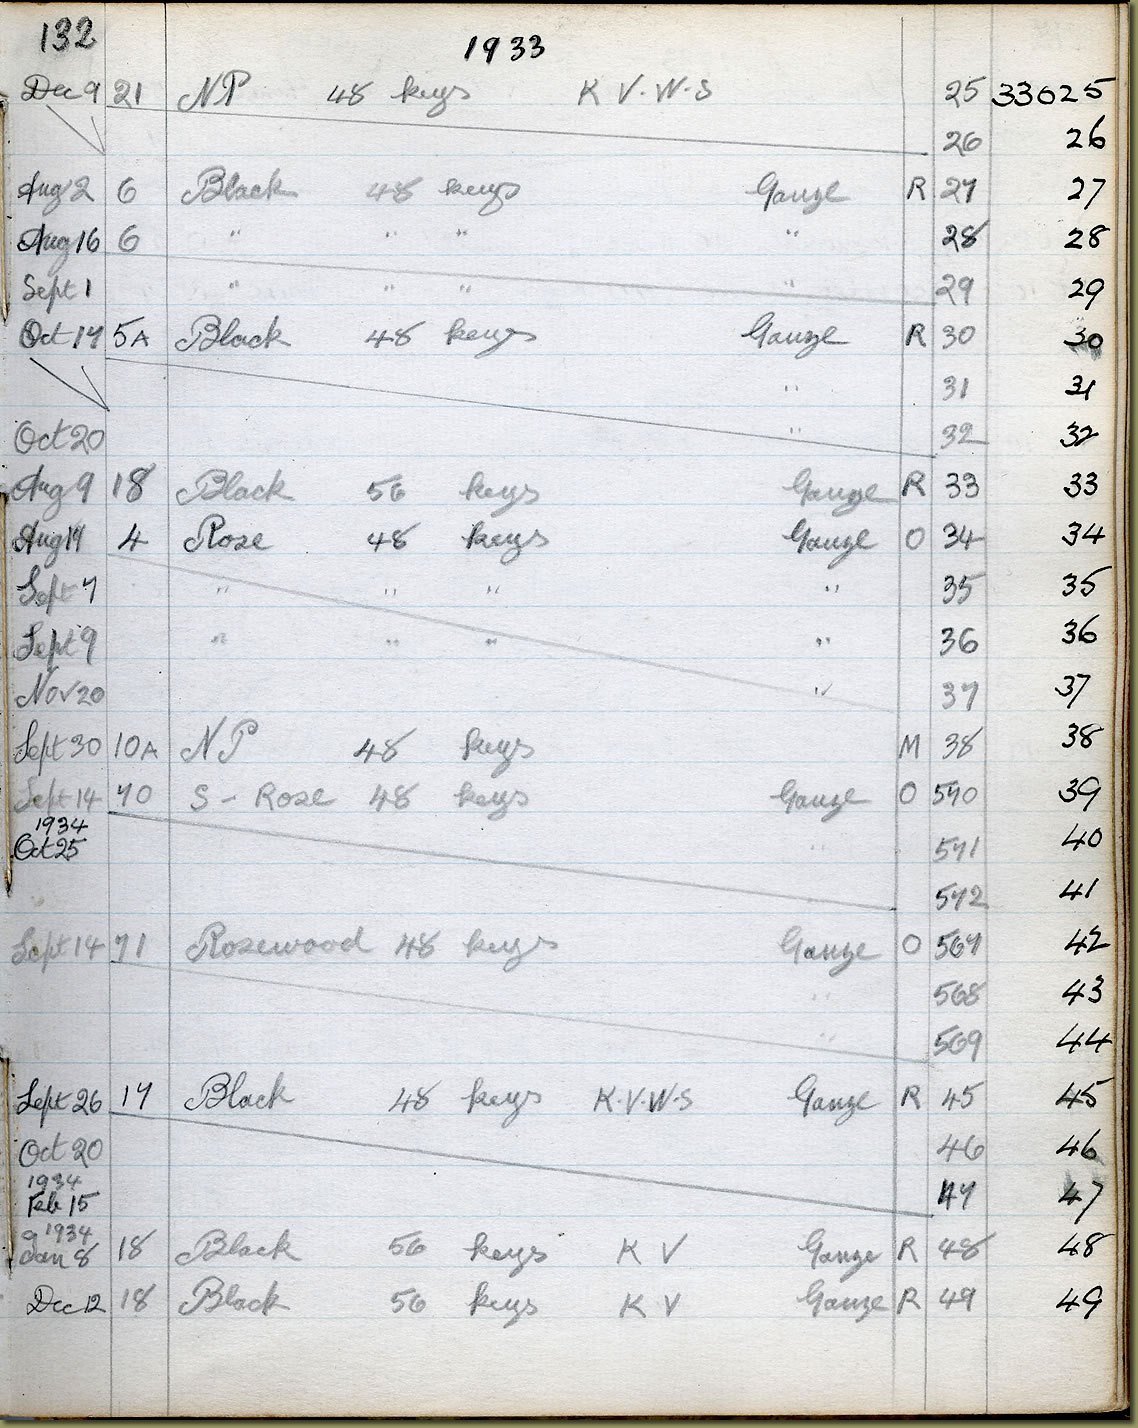 132
1933
Dec 9 21 NP 48 keys K V.W.S 25 33625
26 26
Aug 2 6 Black 48 keys Gauze R 27 27
Aug 16 6 " " " " 28 28
Sept 1 " " " " 29 29
Oct 17 5A Black 48 keys Gauze R 30 30
" 31 31
Oct 20 " 32 32
Aug 9 18 Black 56 keys Gauze R 33 33
Aug 17 4 Rose 48 keys Gauze O 34 34
Sept 7 " " " " 35 35
Sept 9 " " " " 36 36
Nov 20 " 37 37
Sept 30 10A NP 48 keys M 38 38
Sept 14 70 S - Rose 48 keys Gauze O 570 39
1934
Oct 25 " 571 40
572 41
Sept 14 71 Rosewood 48 keys Gauze O 567 42
" 568 43
" 569 44
Sept 26 17 Black 48 keys K.V.W.S Gauze R 45 45
Oct 20 46 46
1934
Feb 15 47 47
1934
Jan 8 18 Black 56 keys K V Gauze R 48 48
Dec 12 18 Black 56 keys K V Gauze R 49 49